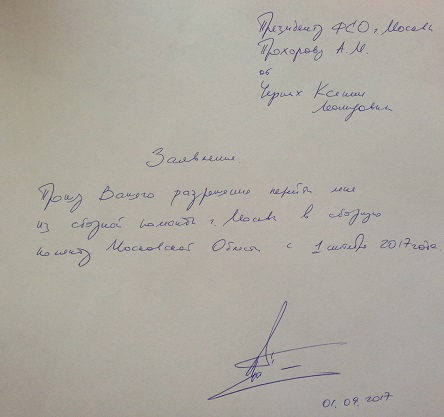 Президенту ФСО г. Москвы
Прохорову А.М.
от
Черных Ксении
Леонидовны
Заявление.
Прошу Вашего разрешение перейти мне
из сборной команты г. Москвы в сборную
команту Московской Области с 1 октября 2017 года.
01.09.2017